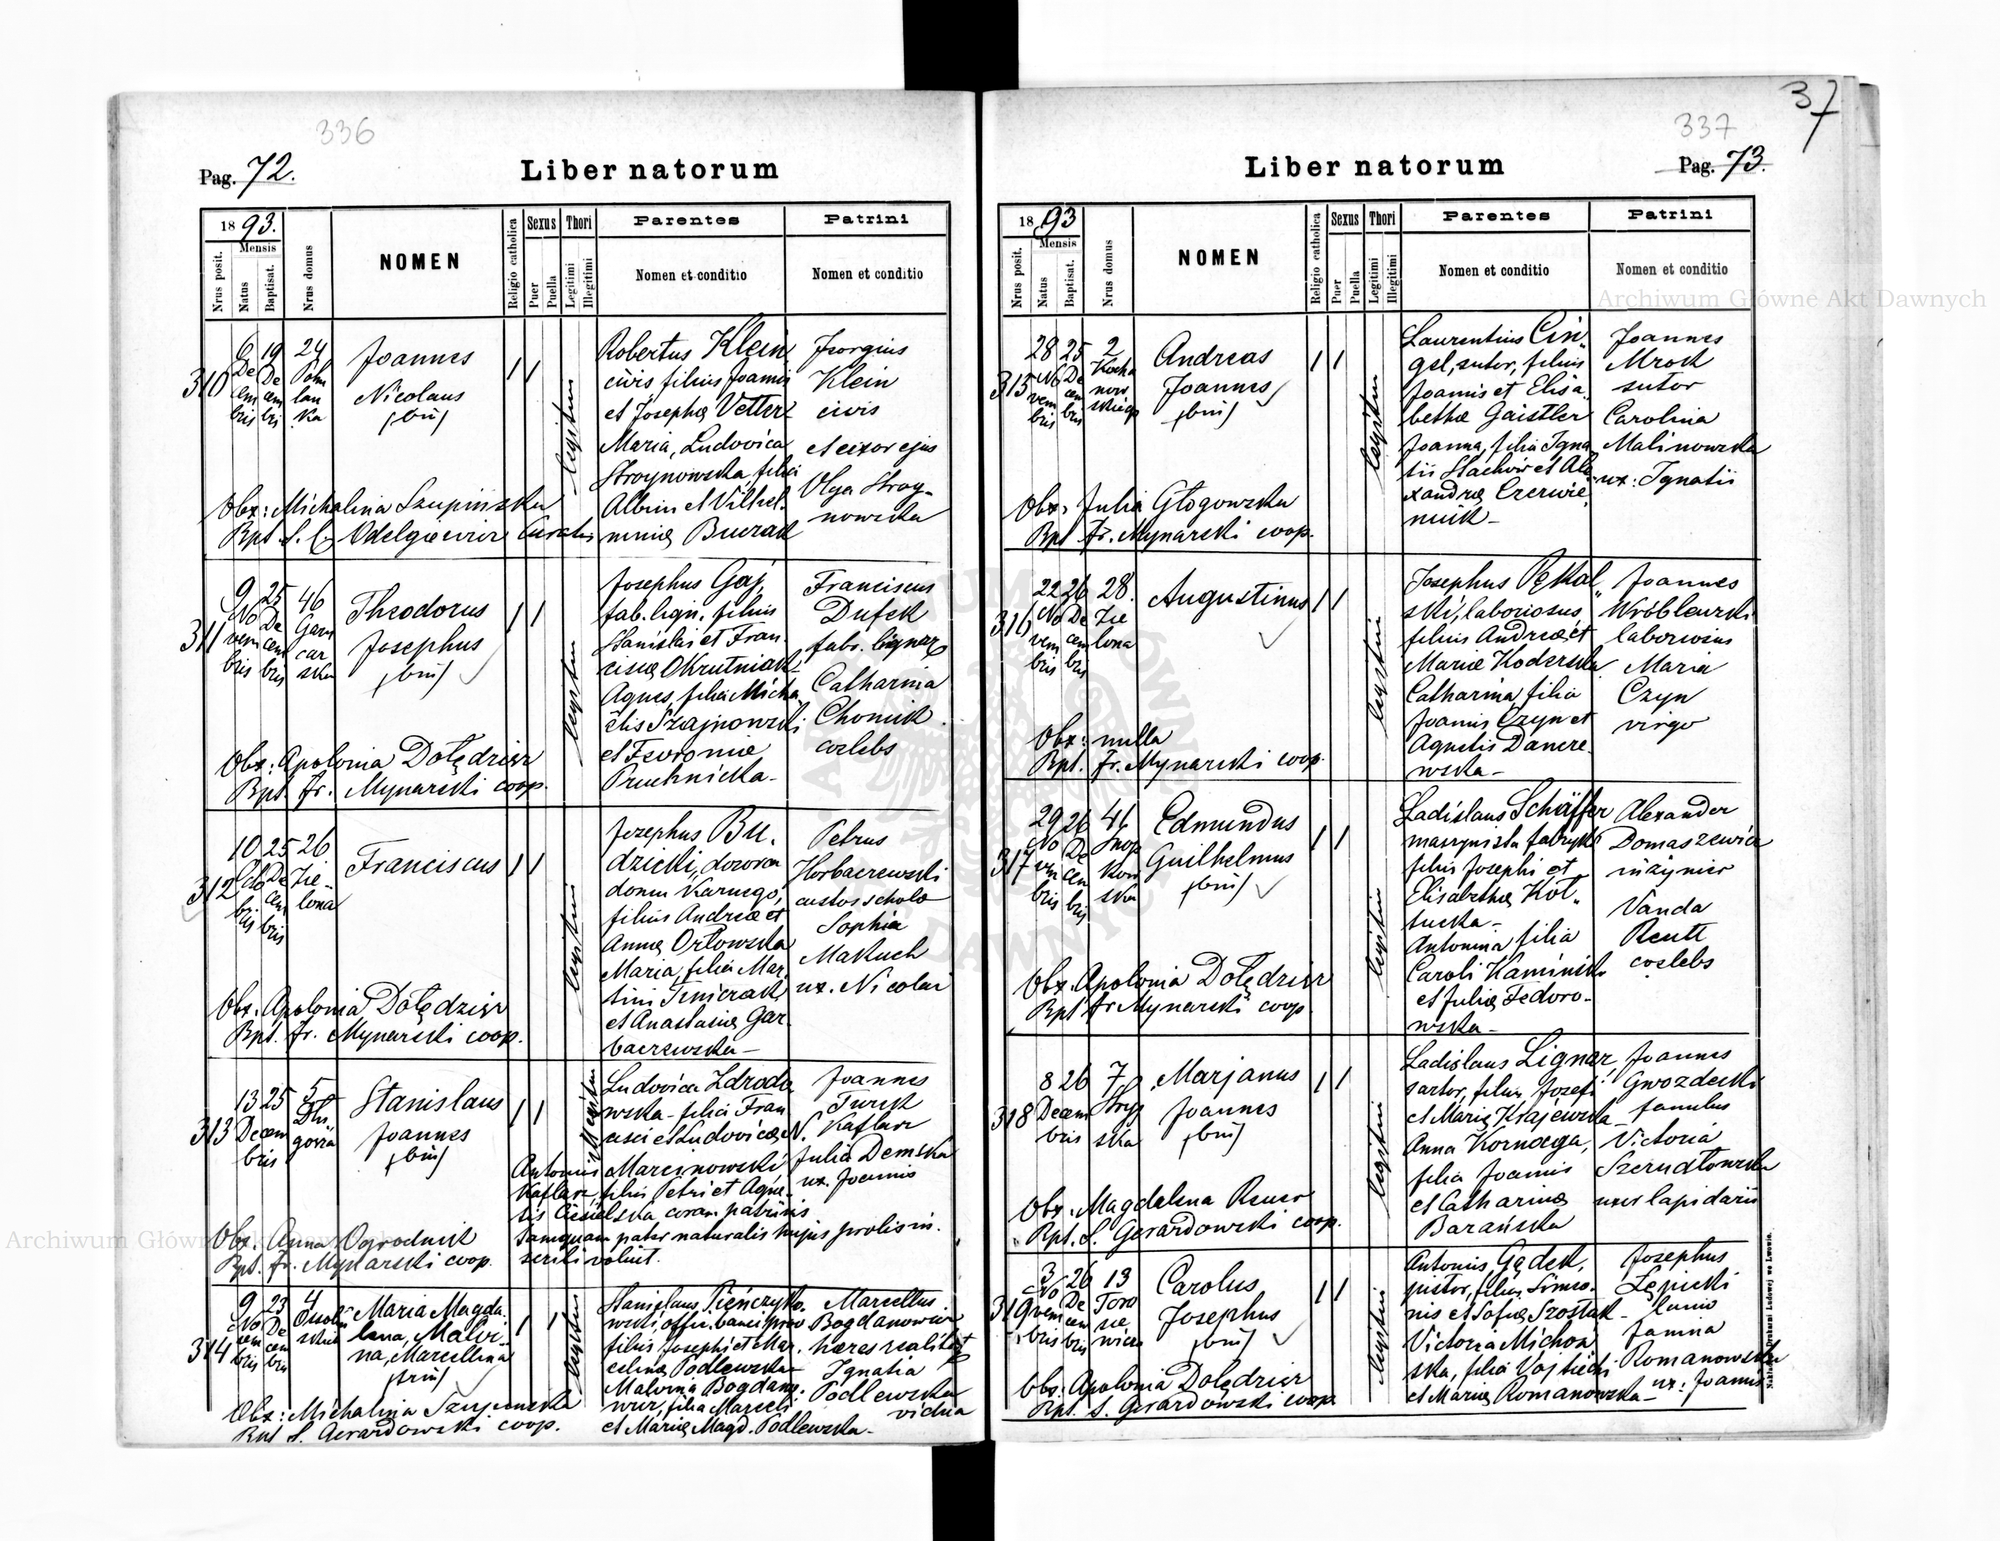 336
Pag. 72.
Liber natorum
18 93.
Mensis
Nrus posit.
Natus
Baptisat.
Nrus domus
NOMEN
Religio catholica
Sexus
Puer
Puella
Thori
Legitimi
Illegitimi
Parentes
Nomen et conditio
Patrini
Nomen et conditio
310
6 De cem bris
19 De cem bri
24
Joannes
Nicolaus
(bin)
legitimi
Robertus Klein
civis filius Joannis
et Josephæ Vetter
Maria, Ludovica
Stroynowska, filia
Albini et Vilhel-
minæ Buczak
Georgius
Klein
civis
et uxor ejus
Olga Stroy-
nowska
Obx: Michalina Szupińska
Bpt. S. Odelgiewicz Curatus
311
9 No vem bris
25 De cem bris
46 Garn car ska
Theodorus
Josephus
(bin)
legitimi
Josephus Gaj,
fab. lign. filius
Stanislai et Fran-
ciscæ Okrutniak
Agnes, filia Micha
elis Szajnowski
et Feronie
Pruchnicka-
Franciscus
Dufek
fabr. lignar
Catharina
Chomik
coelebs
Obx: Apolonia Dołędzier
Bpt. Fr. Mynarski coop.
312
10 Octo bris
25 De cem bris
26 Zie- lona
Franciscus
legitimi
Josephus Bu-
dzicki, dozorca
domu Karnego,
filius Andreæ et
Annæ Orłowska
Maria, filia Mar-
tini
et Anastasiæ Gar-
baczewska-
Petrus
Horbaczewski
custos scholæ
Sophia
Makuch
ux. Nicolai
Obx. Apolonia Dołędzier
Bpt. Fr. Mynarski coop.
313
13 25 Decem bris
5
Stanislaus
Joannes
(bin)
Illegitimi
Ludovica Zdroda
wska- filia Fran-
cisci et Ludovicæ N.
Joannes
Turek
Kaflarz
Julia Demska
ux. Joannis
Antonius Marcinowski
Kaflarz, filius Petri et Agne-
tis Cisielska coram patrinis
tamquam pater naturalis hujus prolis in-
scribi voluit.
Obx. Anna Ogrodnik
Bpt. Fr. Mynarski coop.
314
9 No vem bris
23 De cem bris
4 Ossoliń skich
Maria Magda-
lena, Malvi-
na, Marcellina
(trin)
legitimi
Stanislaus Pieńczyko-
wski, offic. banci prov
filius Josephi et Mar-
celinæ Podlewska
Malvina Bogdano-
wicz, filia Marcelli
et Mariæ Magd. Podlewska-
Marcellus
Bogdanowicz
hæres realitat
Ignatia
Podlewska
vidua
Obx: Michalina Szupinska
Bpt S. Gerardowski coop.
37
337
Liber natorum
Pag. 73.
18 93
Mensis
Nrus posit.
Natus
Baptisat.
Nrus domus
NOMEN
Religio catholica
Sexus
Puer
Puella
Thori
Legitimi
Illegitimi
Parentes
Nomen et conditio
Patrini
Nomen et conditio
Archiwum Główne Akt Dawnych
315
28 No vem bris
25 De cem bris
2 Kocha now skiego
Andreas
Joannes
(bin)
legitimi
Laurentius Cin-
gel, sutor, filius
Joannis et Elisa-
bethæ Gaistler
Joanna, filia Igna
tii Stachów et Ale
xandræ Czerwie
niuk-
Joannes
Mrok
sutor
Carolina
Malinowska
ux: Ignatii
Obx: Julia Głogowska
Bpt Fr. Mynarski coop.
316
22 No vem bris
26 De cem bris
28. Zie lona
Augustinus
legitimi
Josephus Pękal-
ski, laboriosus
filius Andreæ et
Mariæ Koderska
Catharina, filia
Joannis Czyn et
Agnetis Dancre
wska-
Joannes
Wróblewski
laboriosus
Maria
Czyn
virgo
Obx: nulla
Bpt. Fr. Mynarski coop.
317
29 No vem bris
26 De cem bris
46 Snop kow ska
Edmundus
Guilhelmus
(bin)
legitimi
Ladislaus Schäffer
maszynista fabryki
filius Josephi et
Elisabethæ Koł-
tucka-
Antonina filia
Caroli Kaminski
et Juliæ Fedoro-
wska-
Alexander
Domaszewicz
inżynier
Vanda
Reutt
coelebs
Obx. Apolonia Dołędzier
Bpt Fr Mynarski coop.
318
8 26 Decem bris
7 Stryj ska
Marjanus
Joannes
(bin)
legitimi
Ladislaus Lignar,
sartor, filius Josefi
et Mariæ Krajewska
Anna Kornaga,
filia Joannis
et Catharinæ
Barańska
Joannes
Gwozdecki
famulus
Victoria
Szcrudłowska
uxor lapidarii
Obx. Magdalena Reuer
Bpt. S. Gerardowski coop.
319
3 No vem bris
26 De cem bris
13 Toro sie wicza
Carolus
Josephus
(bin)
legitimi
Antonius Gądek,
pistor, filius Simeo-
nis et Sofiæ Szostak
Victoria Michow
ska, filia Vojtiechi
et Mariæ Romanowska-
Josephus
Łępicki
lanio
Janina
Romanowska
ux: Joannis
Obx. Apolonia Dołędzier
Bpt. S. Gerardowski coop.
Archiwum Główne Akt Dawnych